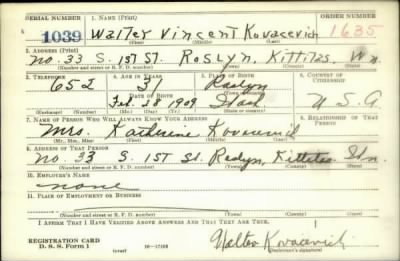 SERIAL NUMBER 1. NAME (Print) ORDER NUMBER
1039 Walter Vincent Kovacevich 1635
(First) (Middle) (Last)
2. ADDRESS (Print)
No. 33 S. 1st St. Roslyn, Kittitas, Wn.
(Number and street or R. F. D. number) (Town) (County) (State)
3. TELEPHONE 4. AGE IN YEARS 5. PLACE OF BIRTH 6. COUNTRY OF CITIZENSHIP
652 31 Roslyn
DATE OF BIRTH (Town or county)
Feb. 18 1909 Wash U.S.A.
(Mo.) (Day) (Yr.) (State or country)
7. NAME OF PERSON WHO WILL ALWAYS KNOW YOUR ADDRESS 8. RELATIONSHIP OF THAT PERSON
Mrs. Katherine Kovacevich
(Mr., Mrs., Miss) (First) (Middle) (Last)
9. ADDRESS OF THAT PERSON
No. 33 S. 1st St. Roslyn, Kittitas
(Number and street or R. F. D. number) (Town) (County) (State)
10. EMPLOYER'S NAME
none
11. PLACE OF EMPLOYMENT OR BUSINESS
(Number and street or R. F. D. number) (Town) (County) (State)
I AFFIRM THAT I HAVE VERIFIED ABOVE ANSWERS AND THAT THEY ARE TRUE.
REGISTRATION CARD
D. S. S. Form 1 Walter Kovacevich
(Registrant's signature)